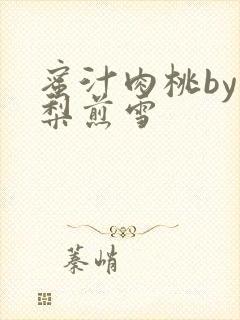 蜜汁肉桃by
梨煎雪
蓁峭